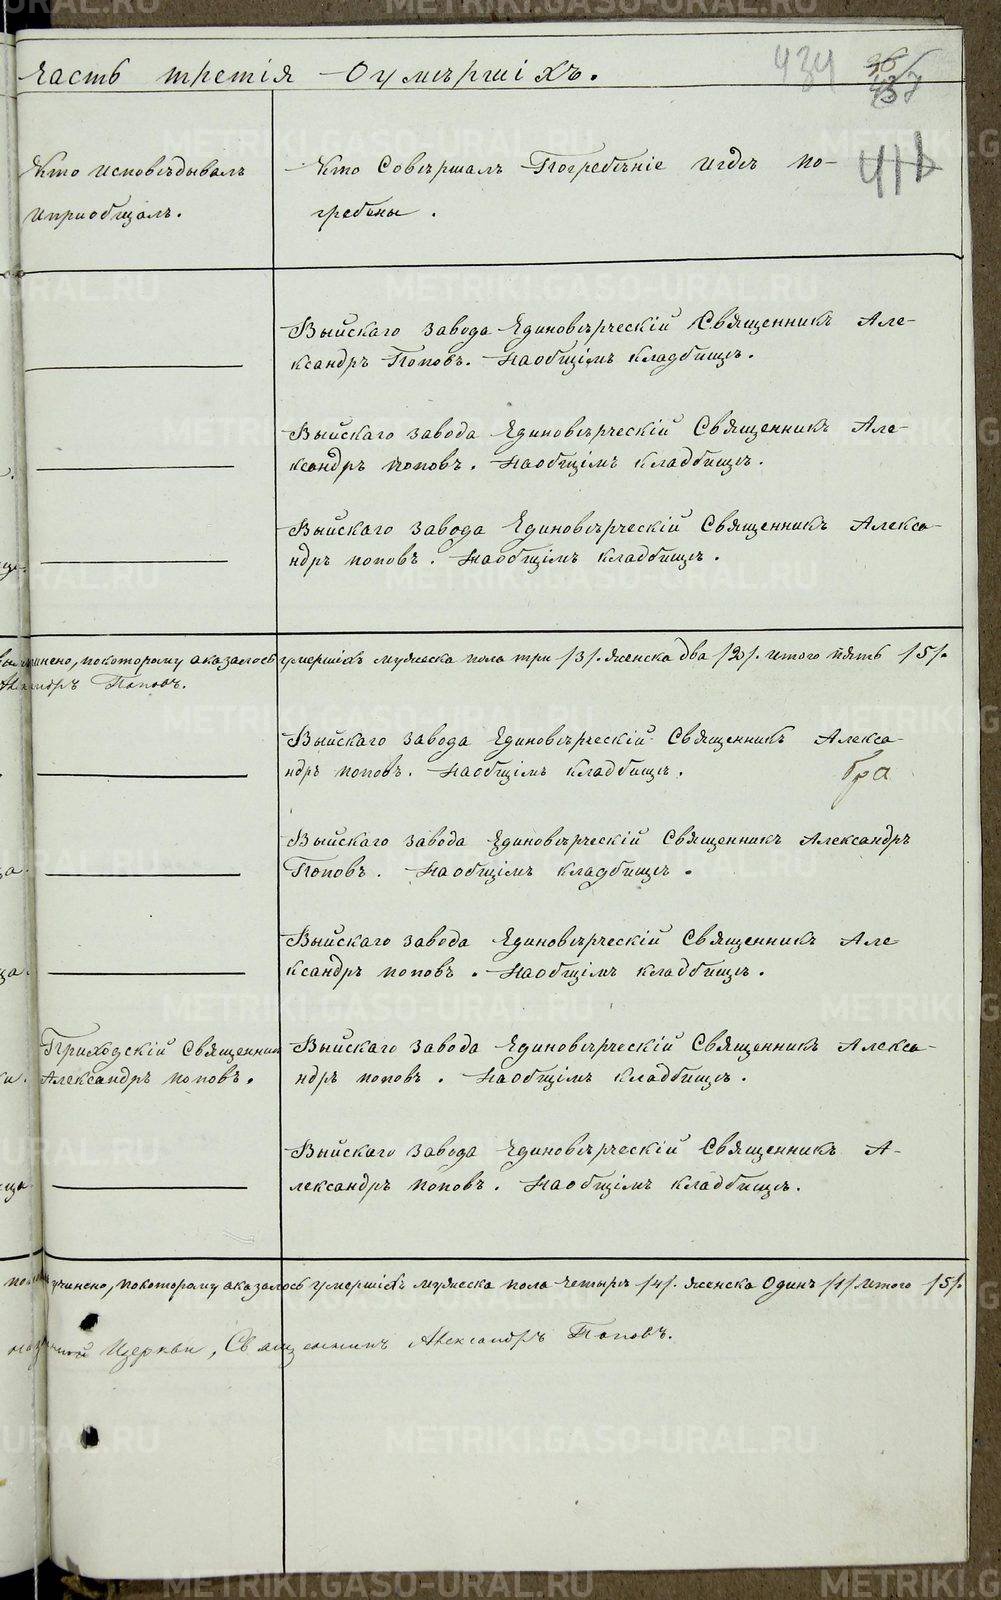 Часть третія О умершихъ.
434
411
Кто исповѣдывалъ
и приобщалъ.
Кто Совершалъ Погребеніе и гдѣ по-
гребены.
Выйскаго завода Единовѣрческій Священникъ Але-
ксандръ Поповъ. На общемъ кладбищѣ.
Выйскаго завода Единовѣрческій Священникъ Але-
ксандръ Поповъ. На общемъ кладбищѣ.
Выйскаго завода Единовѣрческій Священникъ Алекса-
ндръ Поповъ. На общемъ кладбищѣ.
по которому аказалось умершихъ мужеска пола три /3/. женска два /2/. итого пять /5/.
Александръ Поповъ.
Выйскаго завода Единовѣрческій Священникъ Алекса-
ндръ Поповъ. На общемъ кладбищѣ.
бра
Выйскаго завода Единовѣрческій Священникъ Александръ
Поповъ. На общемъ кладбищѣ.
Выйскаго завода Единовѣрческій Священникъ Але
ксандръ Поповъ. На общемъ кладбищѣ.
Приходскій Священник
Александръ Поповъ.
Выйскаго завода Единовѣрческій Священникъ Алекса-
ндръ Поповъ. На общемъ кладбищѣ.
Выйскаго завода Единовѣрческій Священникъ А-
лександръ Поповъ. На общемъ кладбищѣ.
учинено, по которому аказалось умершихъ мужеска пола четыре /4/. женска Одинъ /1/ итого /5/.
Церкви, Священникъ Александръ Поповъ.
METRIKI.GASO-URAL.RU